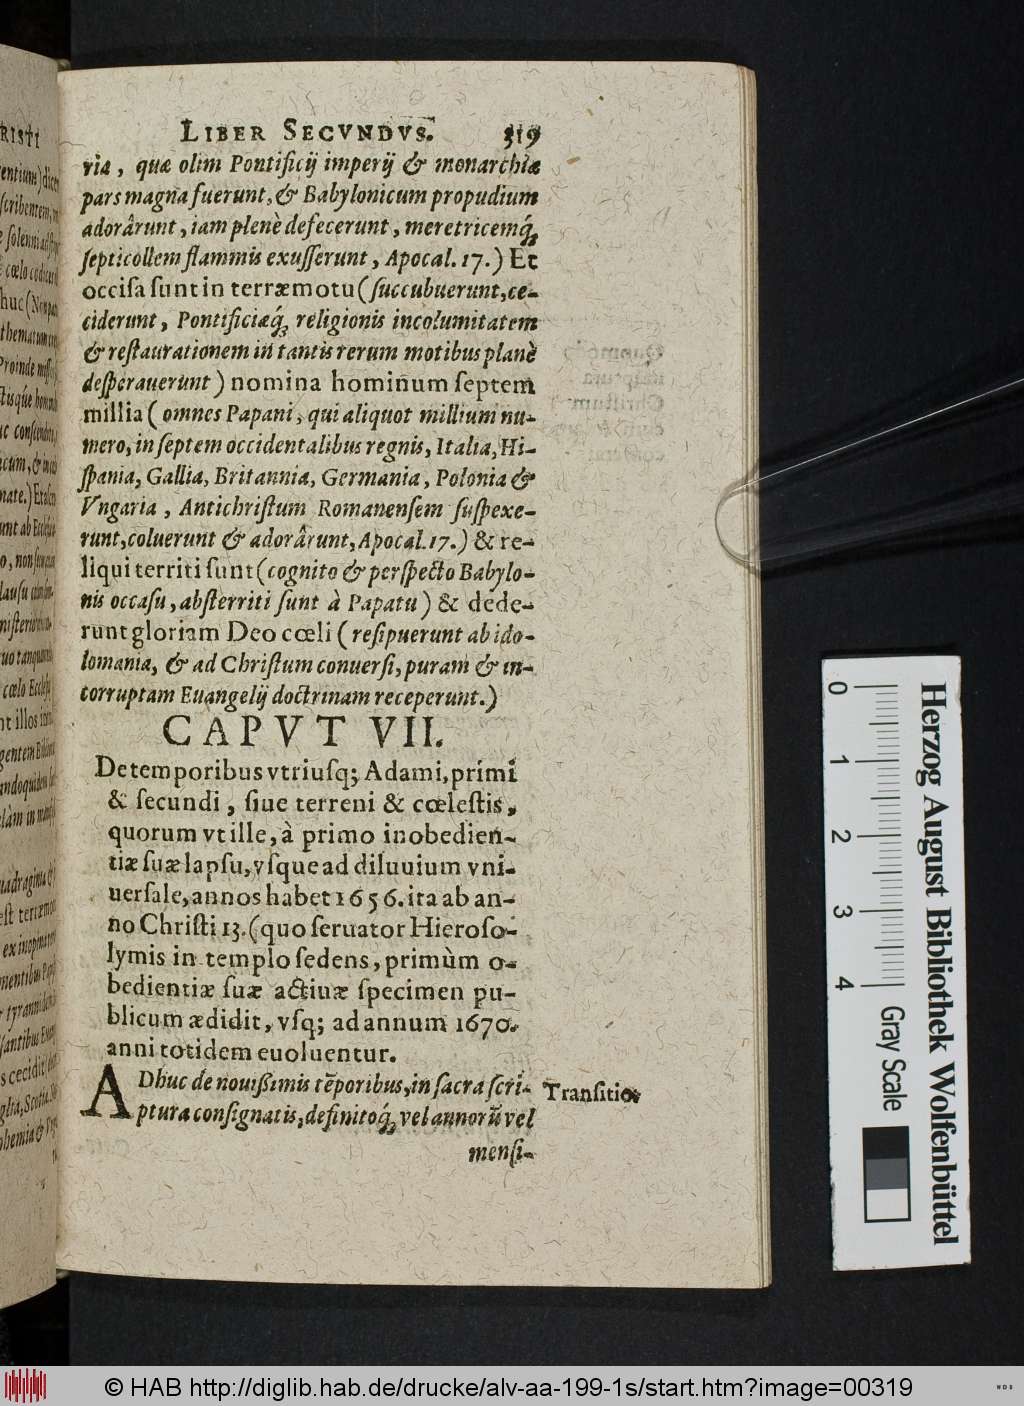 LIBER SECVNDVS. 319
ria, quæ olim Pontificij imperij & monarchiæ
pars magna fuerunt, & Babylonicum propudium
adorârunt, iam plenè defecerunt, meretricemq́;
septicollem flammis exusserunt, Apocal. 17.) Et
occisa sunt in terræmotu (succubuerunt, ce-
ciderunt, Pontificiæq́; religionis incolumitatem
& restaurationem in tantis rerum motibus planè
desperauerunt) nomina hominum septem
millia (omnes Papani, qui aliquot millium nu-
mero, in septem occidentalibus regnis, Italia, Hi-
spania, Gallia, Britannia, Germania, Polonia &
Vngaria, Antichristum Romanensem suspexe-
runt, coluerunt & adorârunt, Apocal. 17.) & re-
liqui territi sunt (cognito & perspecto Babylo-
nis occasu, absterriti sunt à Papatu) & dede-
runt gloriam Deo cœli (resipuerunt ab ido-
lomania, & ad Christum conuersi, puram & in-
corruptam Euangelij doctrinam receperunt.)
CAPVT VII.
De temporibus vtriusq; Adami, primi
& secundi, siue terreni & cœlestis,
quorum vt ille, à primo inobedien-
tiæ suæ lapsu, vsque ad diluuium vni-
uersale, annos habet 1656. ita ab an-
no Christi 13. (quo seruator Hieroso-
lymis in templo sedens, primùm o-
bedientiæ suæ actiuæ specimen pu-
blicum ædidit, vsq; ad annum 1670.
anni totidem euoluentur.
ADhuc de nouissimis tẽporibus, in sacra scri-
ptura consignatis, definitoq́; vel annorũ vel
mensi-
Transitio.
0 1 2 3 4
Herzog August Bibliothek Wolfenbüttel
Gray Scale
© HAB http://diglib.hab.de/drucke/alv-aa-199-1s/start.htm?image=00319